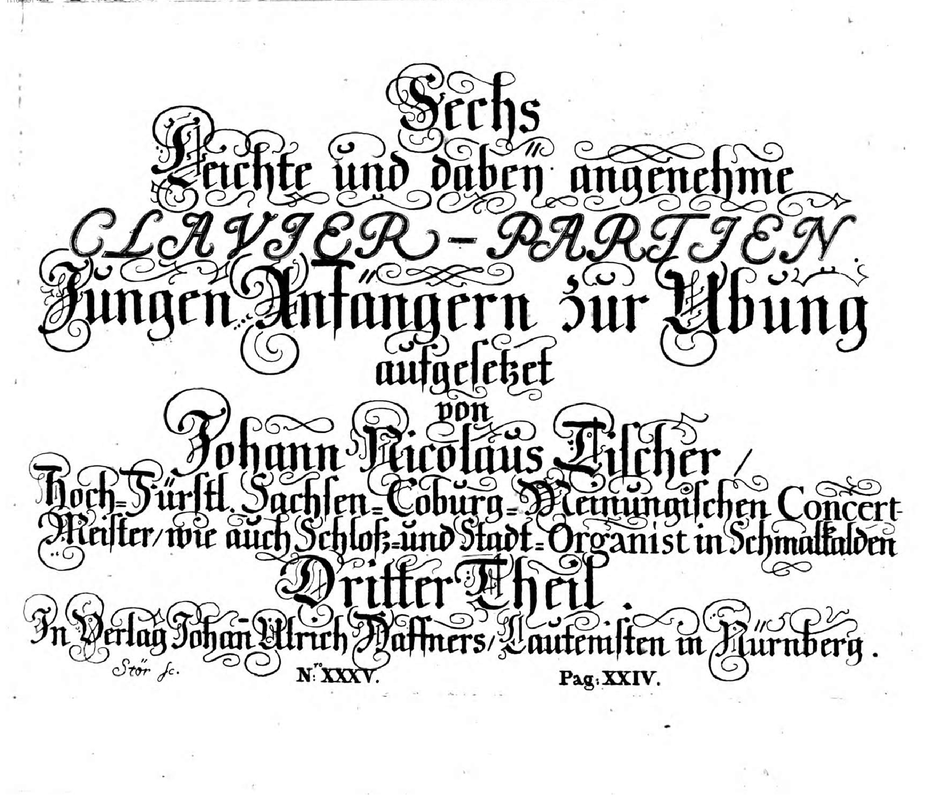 Sechs
Leichte und dabeÿ angenehme
CLAVIER-PARTIEN.
Jungen Anfängern zur Übung
aufgesetzet
von
Johann Nicolaus Tischer /
Hoch-Fürstl. Sachsen-Coburg-Meinungischen Concert-
Meister/ wie auch Schloß-und Stadt-Organist in Schmalkalden
Dritter Theil.
In Verlag Johan̄ Ulrich Haffners/ Lautenisten in Nürnberg.
Stör sc. N:ro XXXV. Pag: XXIV.